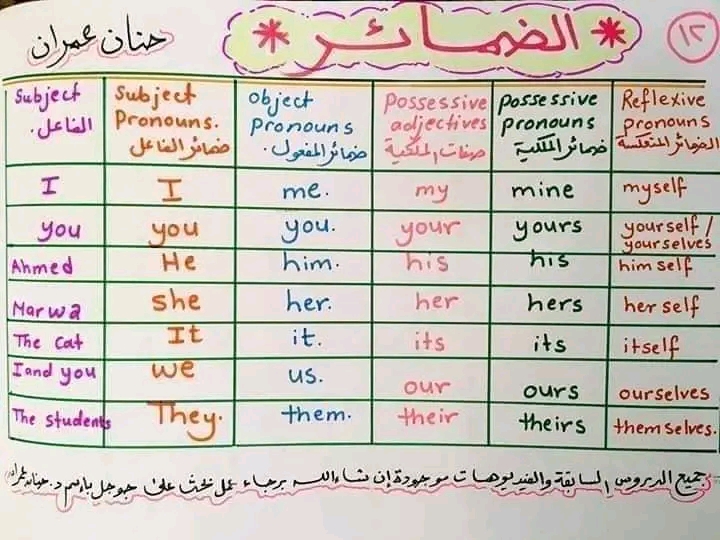 ١٢ * الضمائر * حنان عمران
Subject Subject Object Possessive possessive Reflexive
الفاعل. Pronouns. pronouns adjectives pronouns pronouns
ضمائر الفاعل ضمائر المفعول. صفات الملكية ضمائر الملكية الضمائر المنعكسة
I I me. my mine myself
you you you. your yours yourself / yourselves
Ahmed He him. his his himself
Marwa she her. her hers herself
The cat It it. its its itself
I and you we us. our ours ourselves
The students They. them. their theirs themselves.
جميع الدروس السابقة والفيديوهات موجودة إن شاء الله برجاء عمل بحث على جوجل بإسم د. حنان عمران